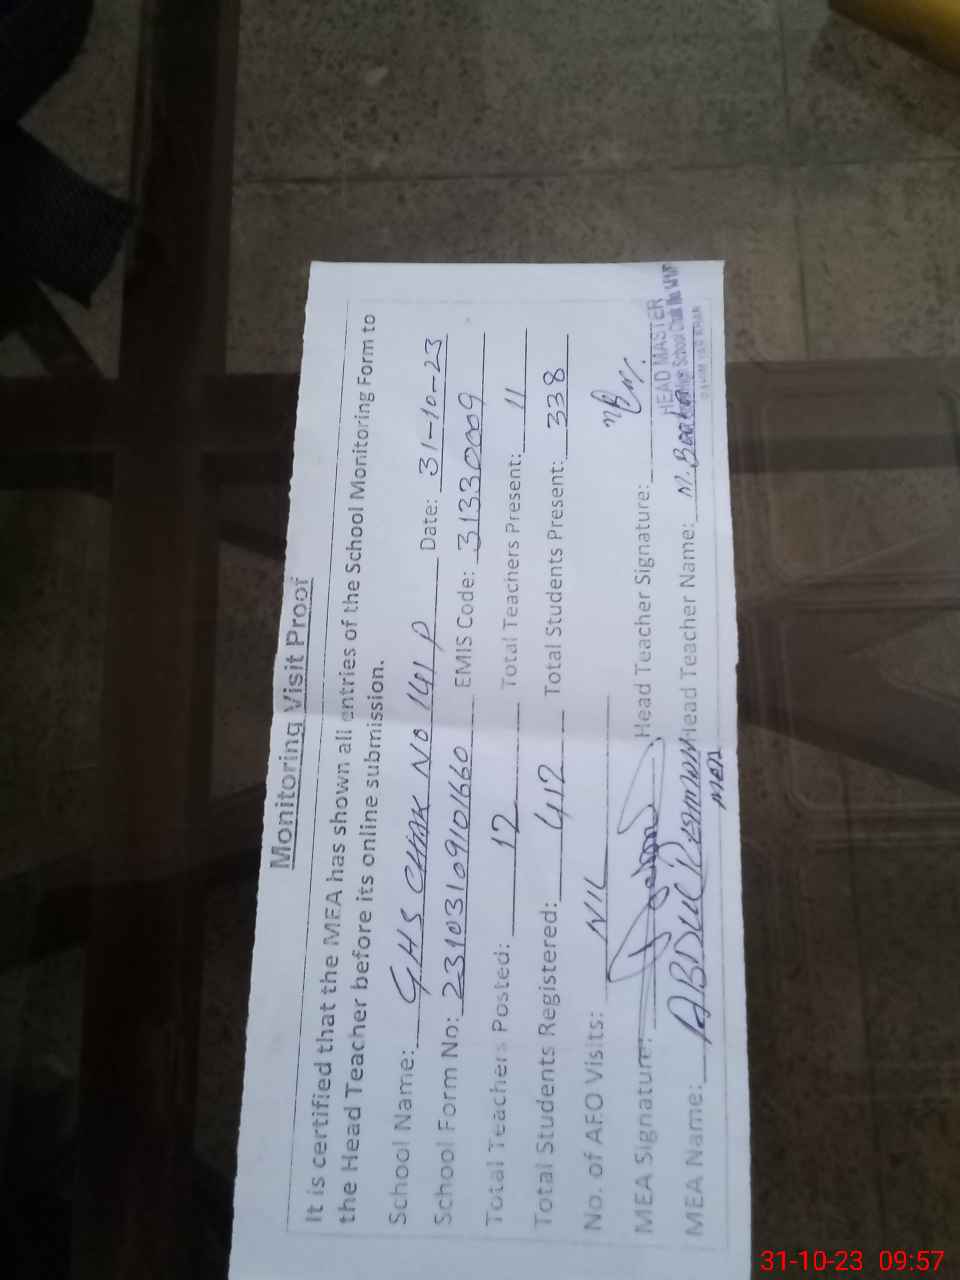 Monitoring Visit Proof
It is certified that the MEA has shown all entries of the School Monitoring Form to
the Head Teacher before its online submission.
School Name: GHS CHAK NO 141 P Date: 31-10-23
School Form No: 23103109101660 EMIS Code: 31330009
Total Teachers Posted: 12 Total Teachers Present: 11
Total Students Registered: 412 Total Students Present: 338
No. of AEO Visits: NIL
MEA Signature: Head Teacher Signature:
MEA Name: ABDUL Head Teacher Name: M.
MEA
HEAD MASTER
High School Chak No
RAHIM YAR KHAN
31-10-23 09:57